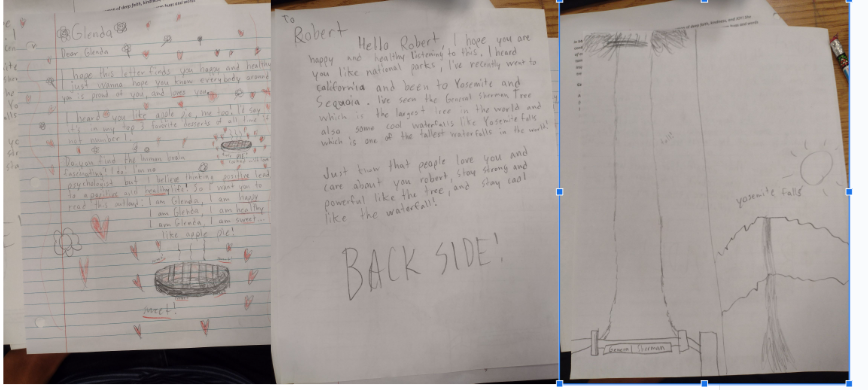 Glenda
Dear, Glenda
I hope this letter finds you happy and healthy
I just wanna hope you know everybody around
you is proud of you and loves you
I heard you like apple pie, me too! I'd say
it's in my top favorite desserts of all
not number 1
Do you find the human brain
fascinating?
psychologist but I believe thinking positive lead
to a positive and healthy life! So I want you to
read this outloud. I am Glenda, I am happy
I am Glenda, I am healthy
I am Glenda, I am sweet
like apple pie!
sweet!
To
Robert
Hello Robert, I hope you are
happy and healthy listening to this, I heard
you like national parks, I've recently went to
california and been to Yosemite and
Sequoia. I've seen the General Sherman Tree
which is the largest tree in the world and
also some cool waterfalls like Yosemite falls
which is one of the tallest waterfalls in the world!
Just know that people love you and
care about you robert, stay strong and
powerful like the tree, and stay cool
like the waterfall!
BACK SIDE!
yosemite falls
General Sherman